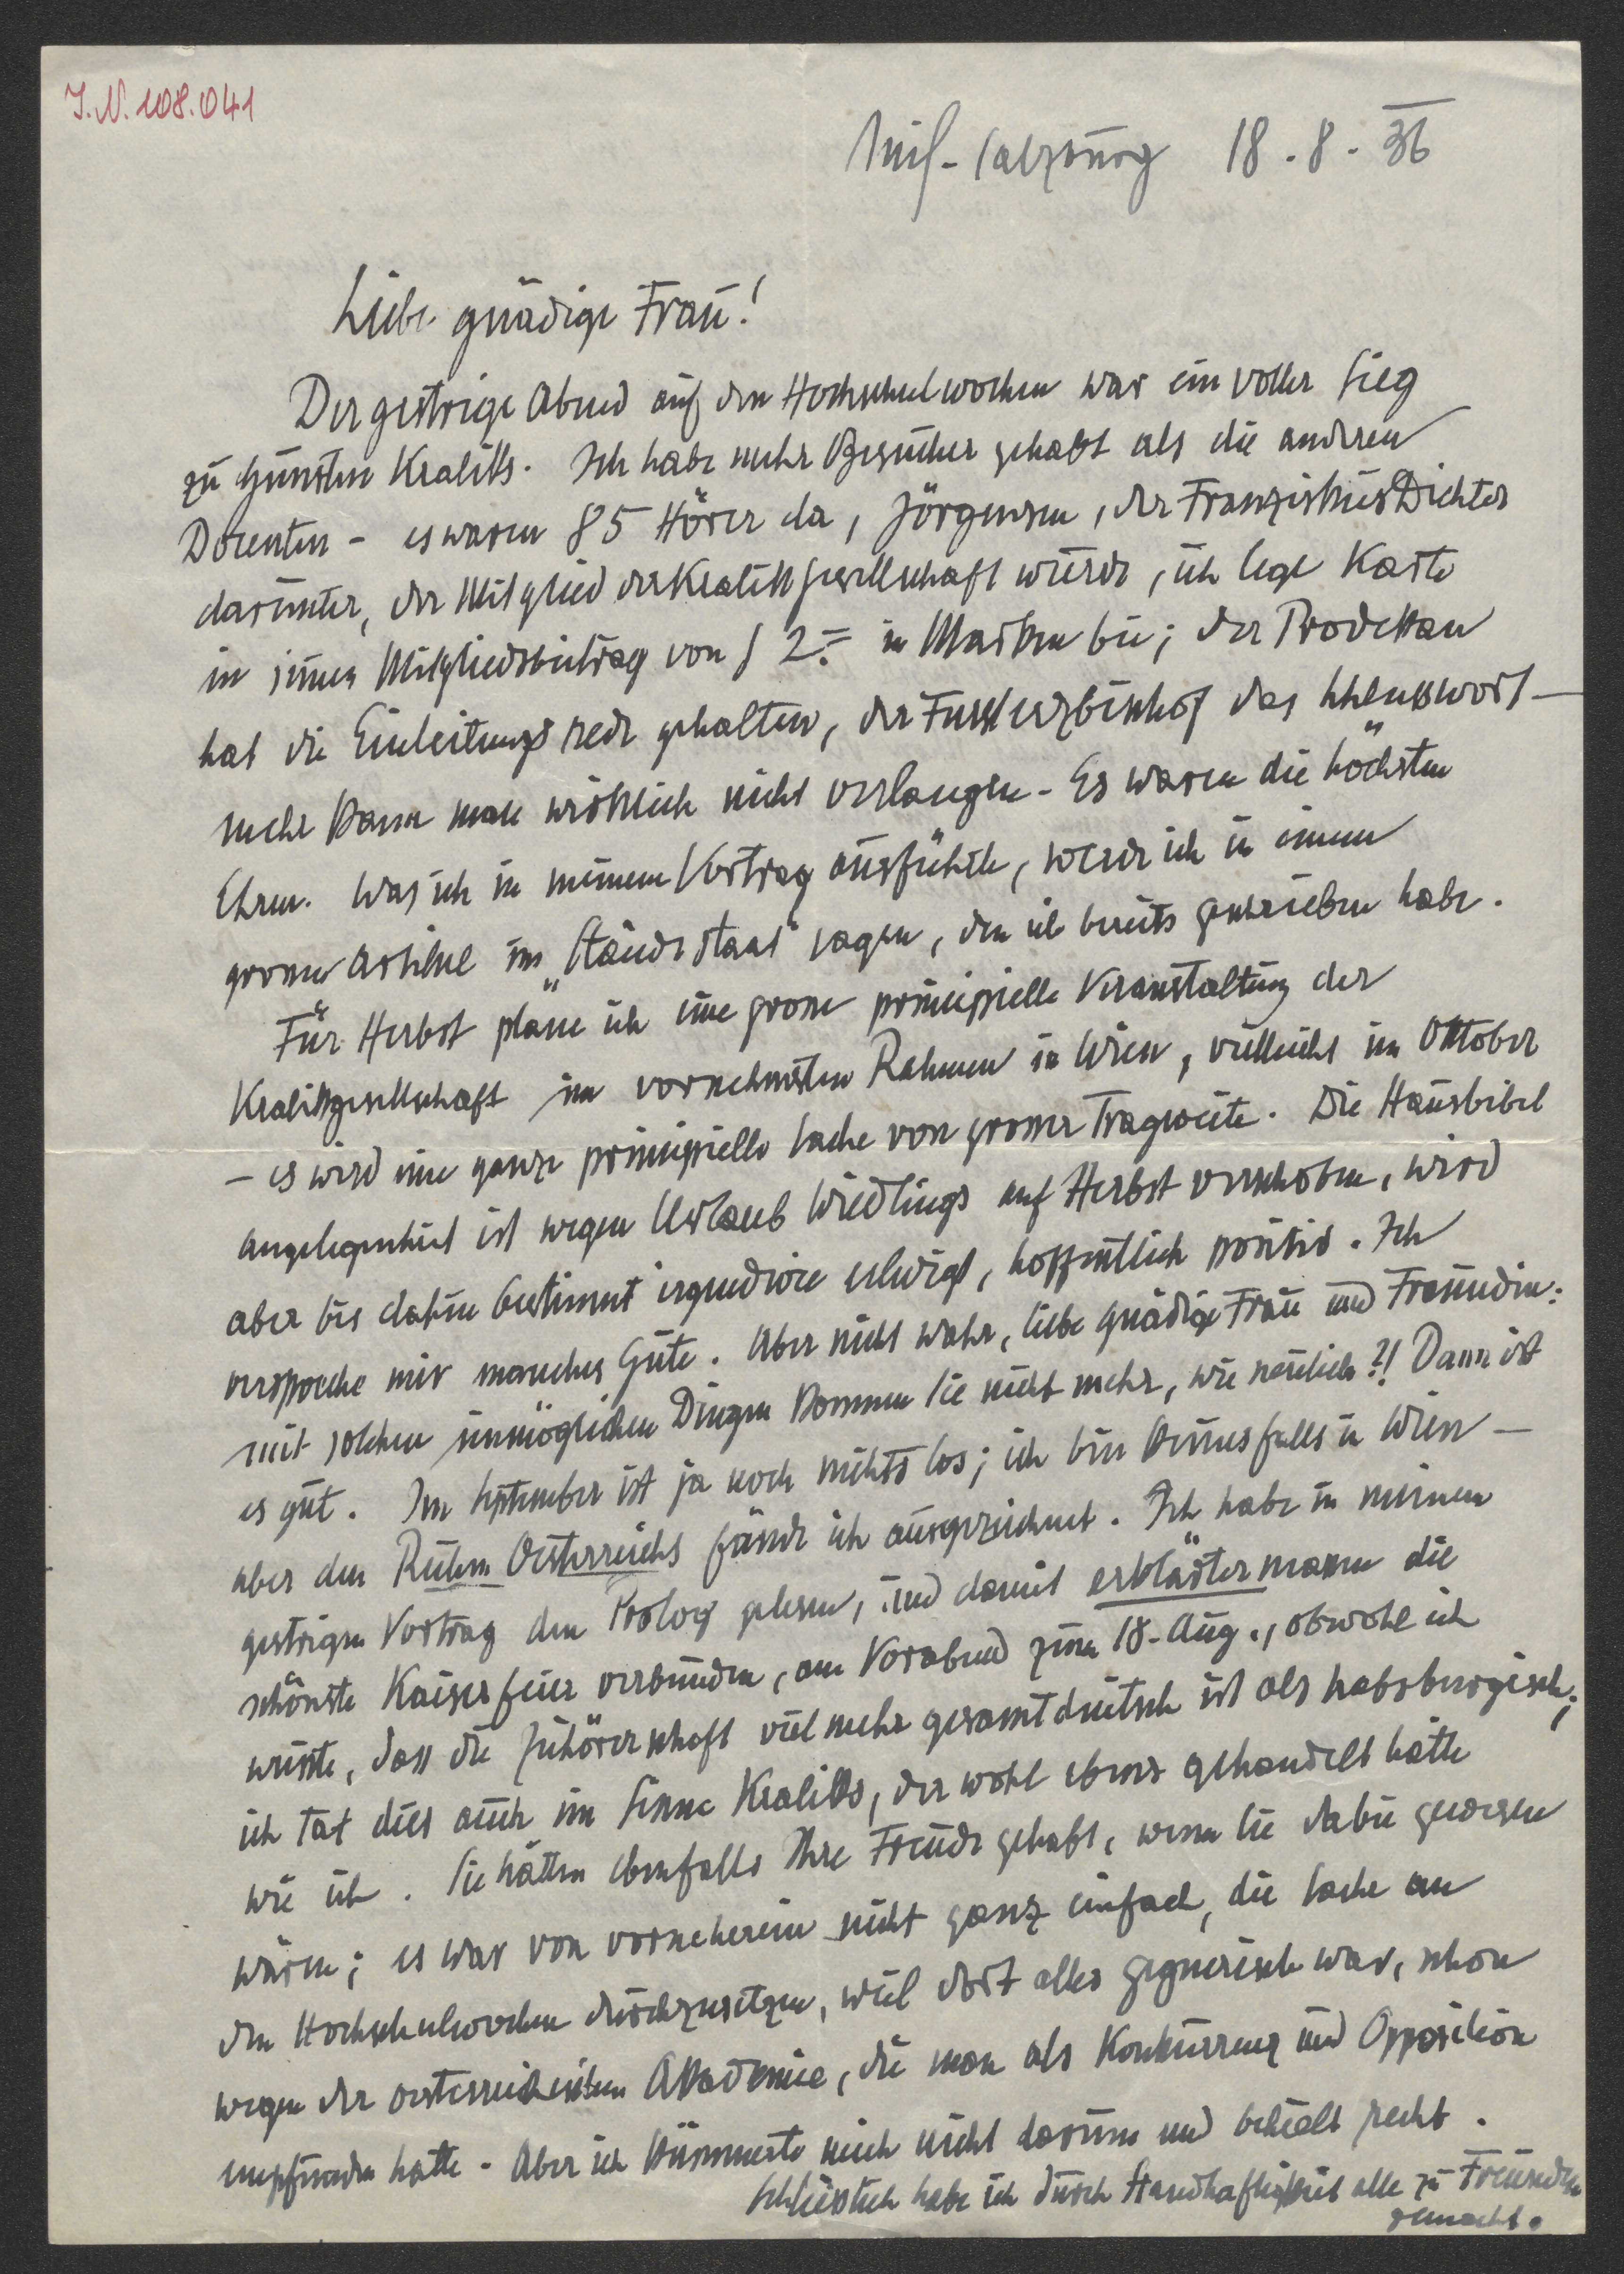 I.N. 108.041
Neif-Salzburg 18.8.36
Liebe gnädige Frau!
Der gestrige Abend auf den Hochschulwochen war ein voller Sieg
zu Gunsten Kraliks. Ich habe mehr Besucher gehabt als die anderen
Dozenten - es waren 85 Hörer da, Jörgensen, der Franziskus Dichter
darunter, der Mitglied der Kralikgesellschaft wurde, ich lege Karte
in seinen Mitgliedsbeitrag von S 2.= in Marken bei; der Prodekan
hat die Einleitungsrede gehalten, der Fursterzbischof das Schlusswort -
mehr kann man wirklich nicht verlangen. Es waren die höchsten
Ehren. Was ich in meinem Vortrag ausführte, werde ich in einem
grossen Artikel im "Ständestaat" sagen, den ich bereits geschrieben habe.
Für Herbst plane ich eine grosse principielle Veranstaltung der
Kralikgesellschaft im vornehmsten Rahmen in Wien, vielleicht im Oktober
- es wird eine ganze principielle Sache von grosser Tragweite. Die Hausbibel
angelegenheit ist wegen Urlaub Wiedlings auf Herbst verschoben, wird
aber bis dahin bestimmt irgendwie erledigt, hoffentlich positiv. Ich
verspreche mir manches Gute. Aber nicht wahr, liebe gnädige Frau und Freundin:
mit solchen unmöglichen Dingen kommen Sie nicht mehr, wie neulich?! Dann ist
es gut. Im September ist ja noch nichts los; ich bin keinesfalls in Wien -
aber den Ruhm Oesterreichs fände ich ausgezeichnet. Ich habe in meinem
gestrigen Vortrag den Prolog gelesen, und damit erklärtermassen die
schönste Kaiserfeier verbunden, am Vorabend zum 18. Aug., obwohl ich
wusste, dass die Zuhörerschaft viel mehr gesamtdeutsch ist als habsburgisch;
ich tat dies auch im Sinne Kraliks, der wohl ebenso gehandelt hätte
wie ich. Sie hätten ebenfalls Ihre Freude gehabt, wenn Sie dabei gewesen
wären; es war von vorneherein nicht ganz einfach, die Sache an
den Hochschulwochen durchzusetzen, weil dort alles gegnerisch war, schon
wegen der oesterreichischen Akademie, die man als Konkurrenz und Opposition
empfunden hatte. Aber ich kümmerte mich nicht darum und behielt recht.
Schliesslich habe ich durch Standhaftigkeit alle zu Freunden
gemacht.